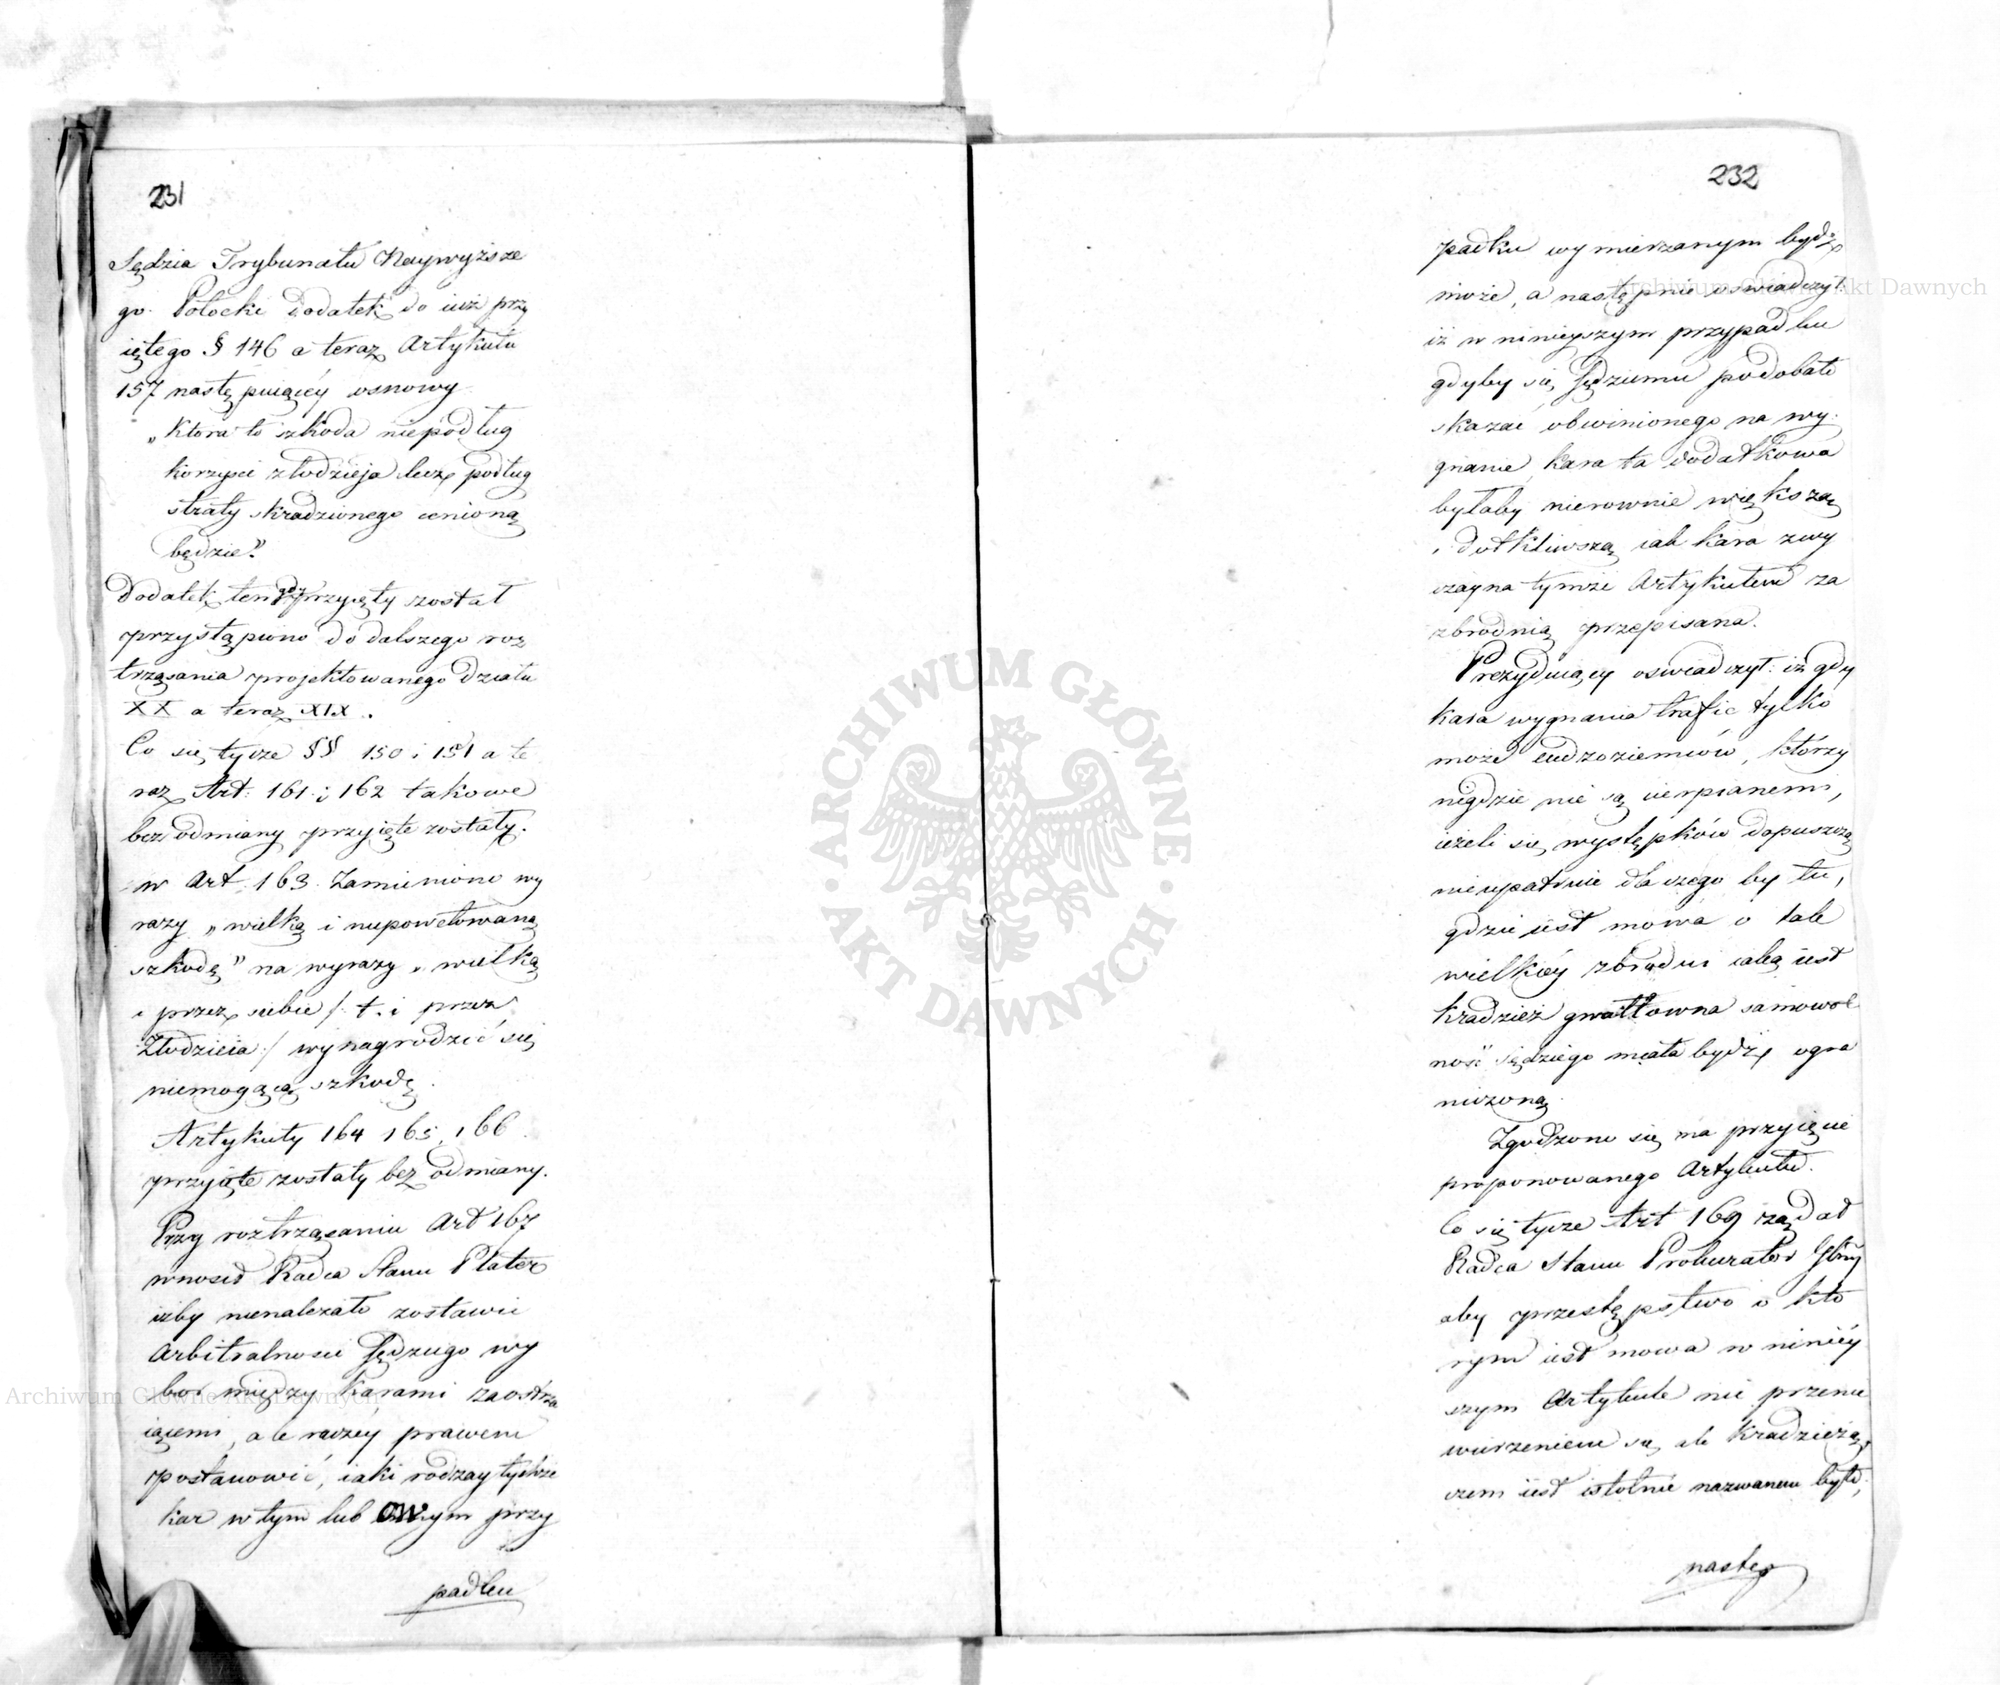 231
Sędzia Trybunału Naywyższe
go. Potocki Dodatek do iuż przy
iętego § 146 a teraz Artykułu
157 następuiącéy osnowy
„Ktora to szkoda niepodług
korzyści złodzieja lecz podług
straty skradzionego cenioną
będzie."
Dodatek ten gdy przyięty został
przystąpiono do dalszego roz
trząsania projektowanego Działu
XX a teraz XIX.
Co się tycze §§ 150 i 151 a te
raz Art: 161 i 162 takowe
bez odmiany przyięte zostały.
w Art: 163. Zamieniono wy
razy „wielką i niepowetowaną
szkodę" na wyrazy „wielką
i przez siebie /: t. i przez
Złodzieia :/ wynagrodzić się
niemogącą szkodę.
Artykuły 164 165, 166
przyięte zostały bez odmiany.
Przy roztrząsaniu Art 167
wnosił Radca Stanu Plater
iżby nienależało zostawić
Arbitralnosci Sędziego wy
bor między karami zaostrza
iącemi, ale raczéy prawem
postanowić, iaki rodzay tychże
kar w tym lub owym przy
padku
232
padku wymierzanym bydź
może, a następnie oswiadczył:
iż w ninieyszym przypadku
gdyby się Sędziemu podobało
skazać obwinionego na wy
gnanie, kara ta dodatkowa
byłaby nierownie większą
i dotkliwszą iak kara zwy
czayna tymże Artykułem za
zbrodnią przepisana.
Prezyduiący oswiadczył: iż gdy
kara wygnania trafić tylko
może cudzoziemców, którzy
nigdzie nie są cierpianemi,
ieżeli się występków dopuszczą
nieupatruie dla czego by tu,
gdzie iest mowa o tak
wielkiéy zbrodni iaką iest
kradzież gwałtowna samowol
ność sędziego miała bydź ogra
niczoną.
Zgodzono się na przyięcie
proponowanego Artykułu.
Co się tycze Art 169 żądał
Radca Stanu Prokurator Głny
aby przestępstwo o kto
rym iest mowa w niniéy
szym Artykule nie przenie
wierzeniem się, ale kradzieżą,
czem iest istotnie nazwanem było;
następ
Archiwum Główne Akt Dawnych
Archiwum Główne Akt Dawnych
· ARCHIWUM GŁÓWNE ·
AKT DAWNYCH